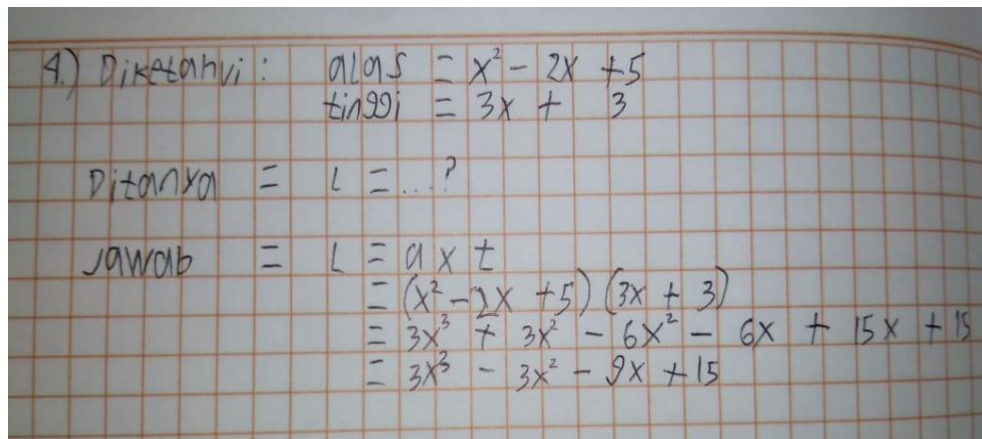 4.) Diketahui : alas = x² - 2x + 5
tinggi = 3x + 3
Ditanya = L = ...?
Jawab = L = a x t
= (x² - 2x + 5) (3x + 3)
= 3x³ + 3x² - 6x² - 6x + 15x + 15
= 3x³ - 3x² - 9x + 15